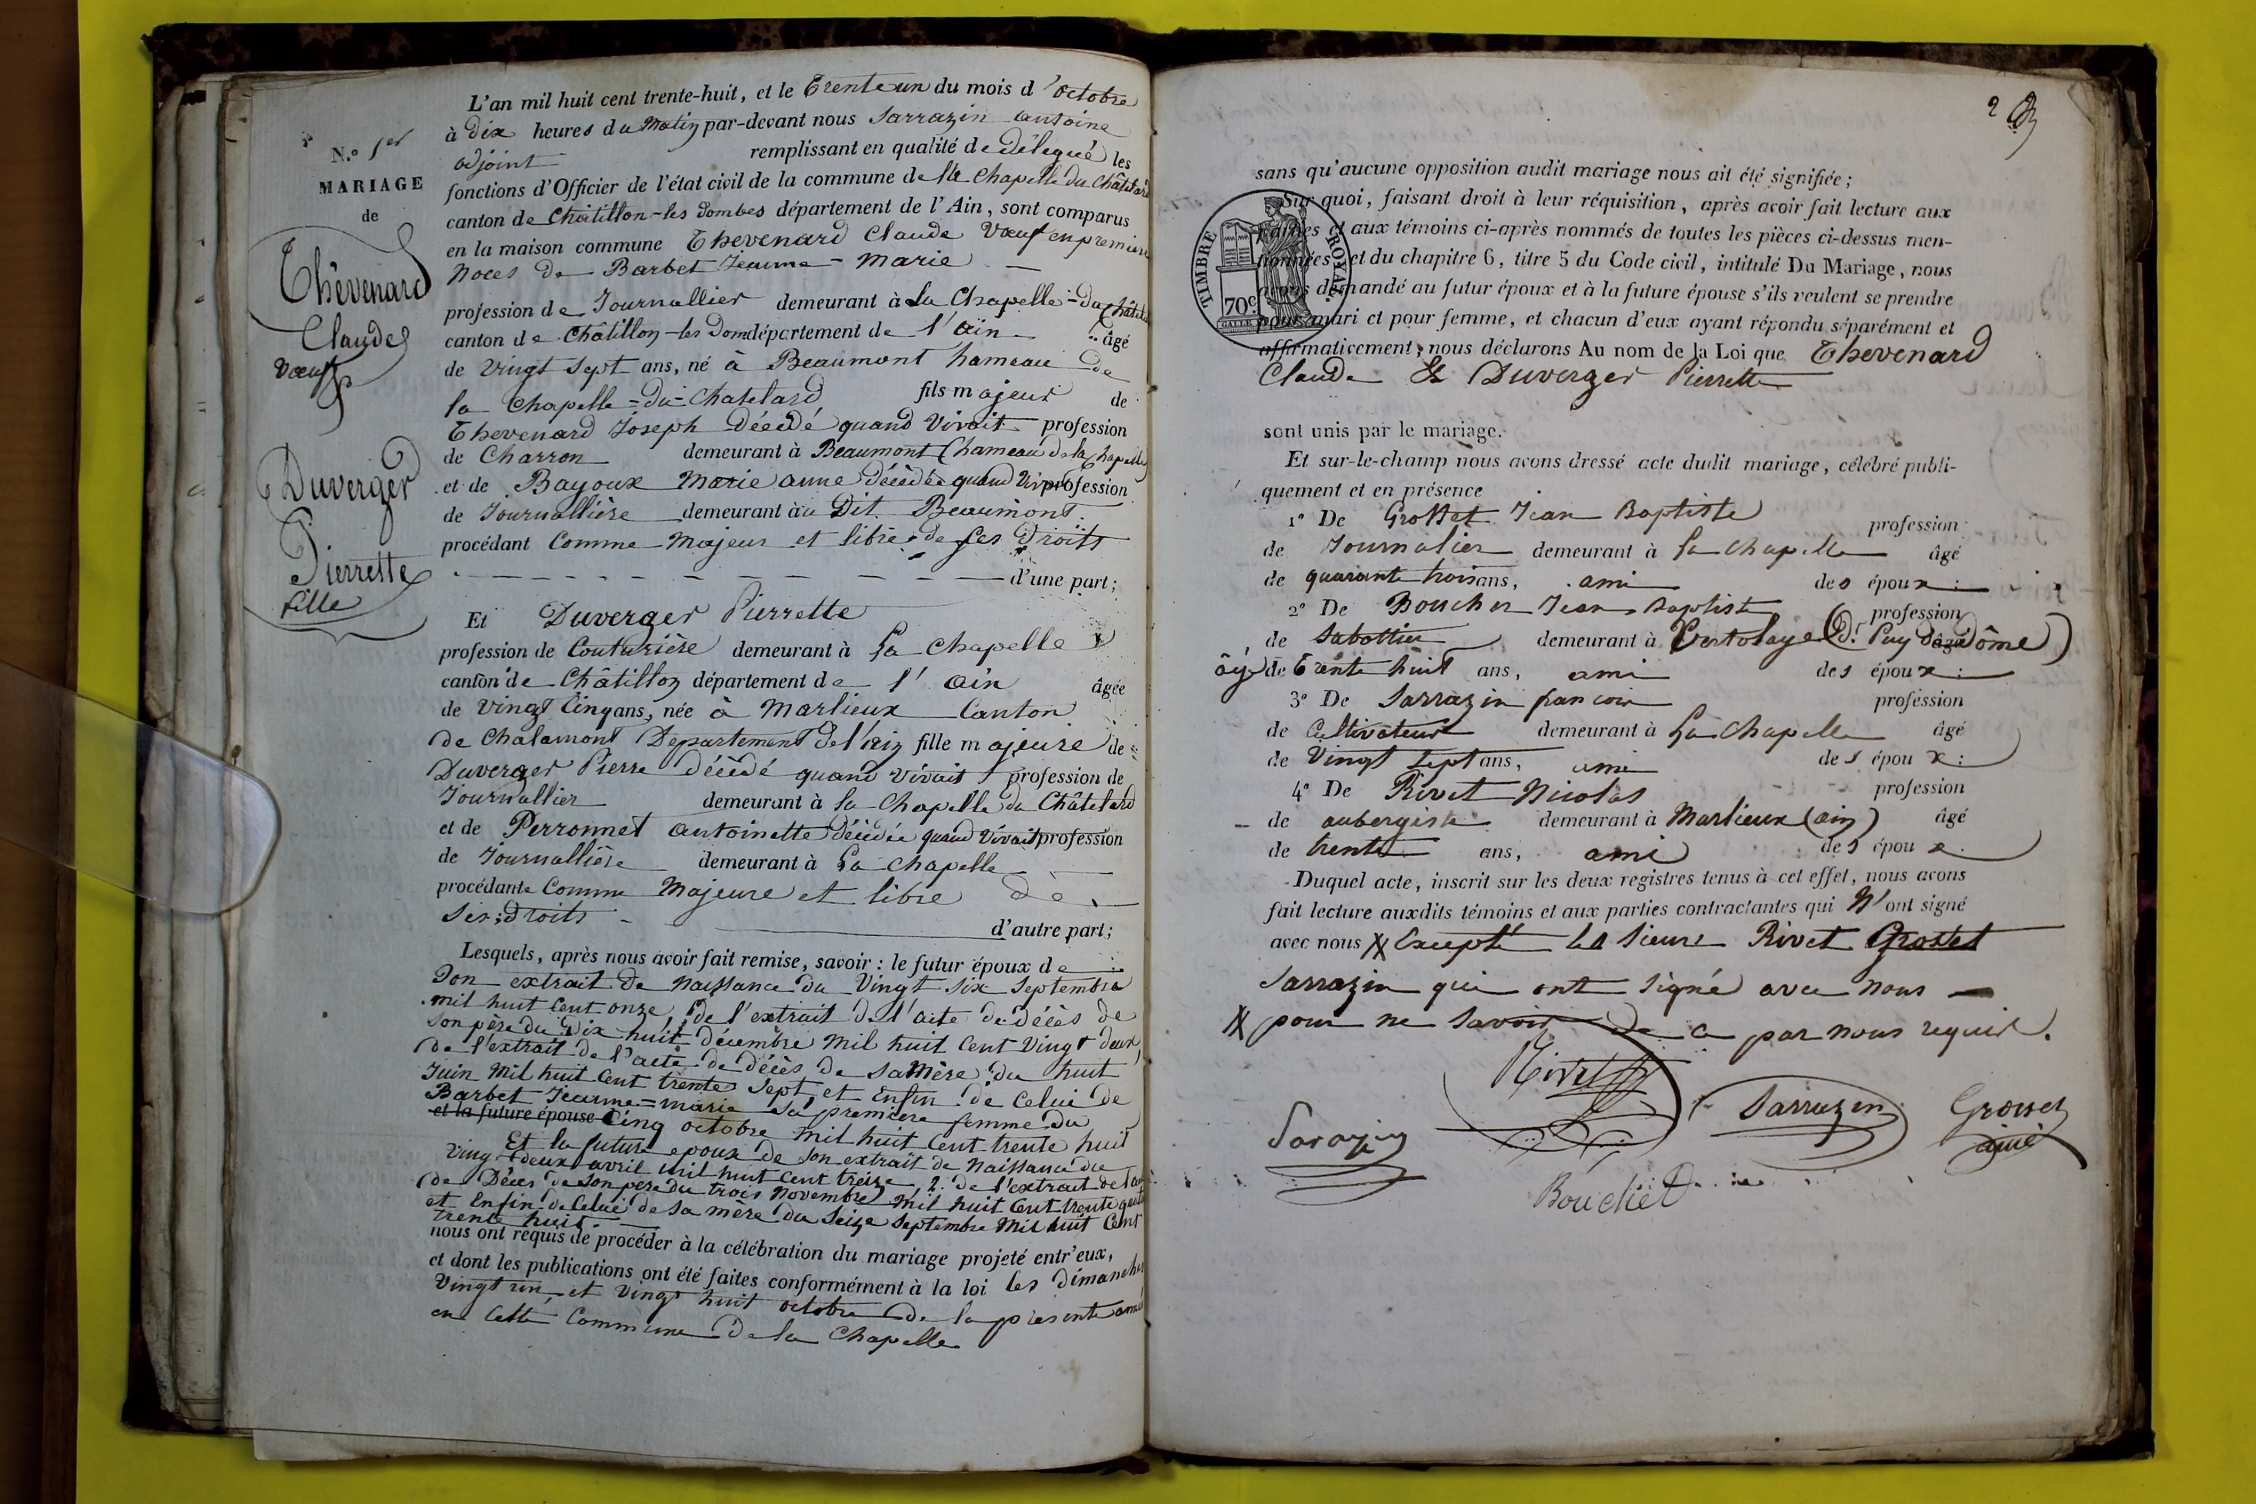 N.o 1er
MARIAGE
de
Thévenard
Claude
Vœuf
Duverger
Pierrette
fille
L'an mil huit cent trente-huit, et le Trente un du mois d'octobre
à Dix heures du Matin par-devant nous Sarrazin antoine
adjoint remplissant en qualité de délégué les
fonctions d'Officier de l'état civil de la commune de la Chapelle du Châtelard
canton de Châtillon-les Dombes département de l'Ain, sont comparus
en la maison commune Thevenard Claude Vœuf en premiere
Noces de Barbet Jeanne-Marie
profession de Journallier demeurant à La Chapelle-Du Châtelard
canton de Châtillon-les Dom département de l'ain âgé
de Vingt Sept ans, né à Beaumont hameau de
la Chapelle-du-Chatelard fils majeur de
Thevenard Joseph Décédé quand Vivait profession
de Charron demeurant à Beaumont (hameau de la Chapelle)
et de Bayoux Marie anne décédée quand Viv profession
de Journallière demeurant au Dit Beaumont
procédant Comme Majeur et libre de ses Droits
d'une part;
Et Duverger Pierrette
profession de Couturière demeurant à La Chapelle
canton de Châtillon département de l'ain âgée
de Vingt Cinq ans, née à Marlieux Canton
de Chalamont Departement de l'ain fille majeure de
Duverger Pierre décédé quand vivait profession de
Journallier demeurant à la Chapelle du Châtelard
et de Perronnet antoinette décédée quand Vivait profession
de Journallière demeurant à La Chapelle
procédante Comme Majeure et libre de
ses droits
d'autre part;
Lesquels, après nous avoir fait remise, savoir: le futur époux de
Son extrait de Naissance du Vingt six Septembre
mil huit Cent onze, de l'extrait de l'acte de décès de
son père du Dix huit décembre Mil huit Cent Vingt deux
de l'extrait de l'acte de décès de sa Mère du huit
Juin Mil huit Cent trente Sept, et Enfin de Celui de
Barbet Jeanne-marie sa première femme du
et la future épouse Cinq octobre Mil huit Cent trente huit
Et la future epoux de son extrait de Naissance du
Vingt deux avril mil huit Cent treize, 2. de l'extrait de l'acte
de Décès de son pere du trois Novembre Mil huit Cent trente quatre
et Enfin de Celui de sa mère du Seize Septembre Mil huit Cent
trente huit.
nous ont requis de procéder à la célébration du mariage projeté entr'eux,
et dont les publications ont été faites conformément à la loi les dimanches
Vingt un et Vingt huit octobre de la présente année
en cette Commune de la Chapelle
2
sans qu'aucune opposition audit mariage nous ait été signifiée;
Sur quoi, faisant droit à leur réquisition, après avoir fait lecture aux
parties et aux témoins ci-après nommés de toutes les pièces ci-dessus men-
tionnées, et du chapitre 6, titre 5 du Code civil, intitulé Du Mariage, nous
avons demandé au futur époux et à la future épouse s'ils veulent se prendre
pour mari et pour femme, et chacun d'eux ayant répondu séparément et
affirmativement, nous déclarons Au nom de la Loi que Thevenard
Claude & Duverger Pierrette
TIMBRE ROYAL
70c
sont unis par le mariage.
Et sur-le-champ nous avons dressé acte dudit mariage, célébré publi-
quement et en présence
1o De Grosset Jean Baptiste profession
de Journalier demeurant à La Chapelle âgé
de quarante trois ans, ami des époux:
2o De Boucher Jean Baptiste profession
de Sabottier demeurant à Vertolaye (D. Puy de Dôme) âgé
âgé de Trente huit ans, ami des époux:
3o De Sarrazin francois profession
de Cultivateur demeurant à La Chapelle âgé
de Vingt sept ans, ami des époux:
4o De Rivet Nicolas profession
de aubergiste demeurant à Marlieux (ain) âgé
de trente ans, ami des époux.
Duquel acte, inscrit sur les deux registres tenus à cet effet, nous avons
fait lecture auxdits témoins et aux parties contractantes qui N'ont signé
avec nous X Excepté les sieurs Rivet Grosset
Sarrazin qui ont signé avec nous
X pour ne savoir de ce par nous requis.
Rivet
Sarrazin
Grosset
ainé
Sarazin
Bouchet